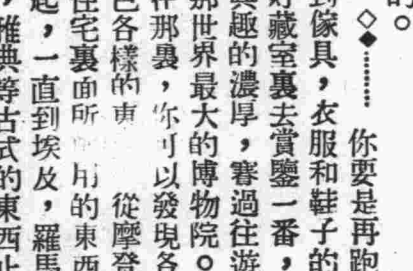 的。
◇◆………你要是再跑
到傢具，衣服和鞋子的
藏室裏去賞鑒一番，
興趣的濃厚，賽過往游
那世界最大的博物院。
在那裏，你可以發現各
色各樣的東 從摩登
住宅裏面所 用的東西
起，一直到埃及，羅馬
，雅典等古式的東西止